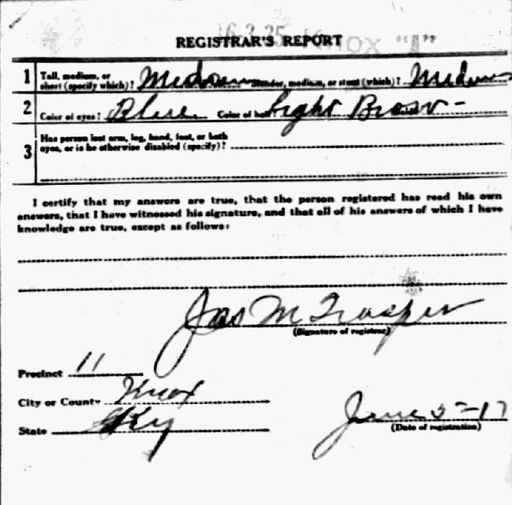 6 3 25 Knox "A"
REGISTRAR'S REPORT
1 Tall, medium, or short (specify which)? Medium Slender, medium, or stout (which)? Medium
2 Color of eyes? Blue Color of hair? Light Brown -
3 Has person lost arm, leg, hand, foot, or both eyes, or is he otherwise disabled (specify)?
I certify that my answers are true, that the person registered has read his own
answers, that I have witnessed his signature, and that all of his answers of which I have
knowledge are true, except as follows:
Jas M
(Signature of registrar)
Precinct 11
City or County Knox
State Ky
June 5-17
(Date of registration)